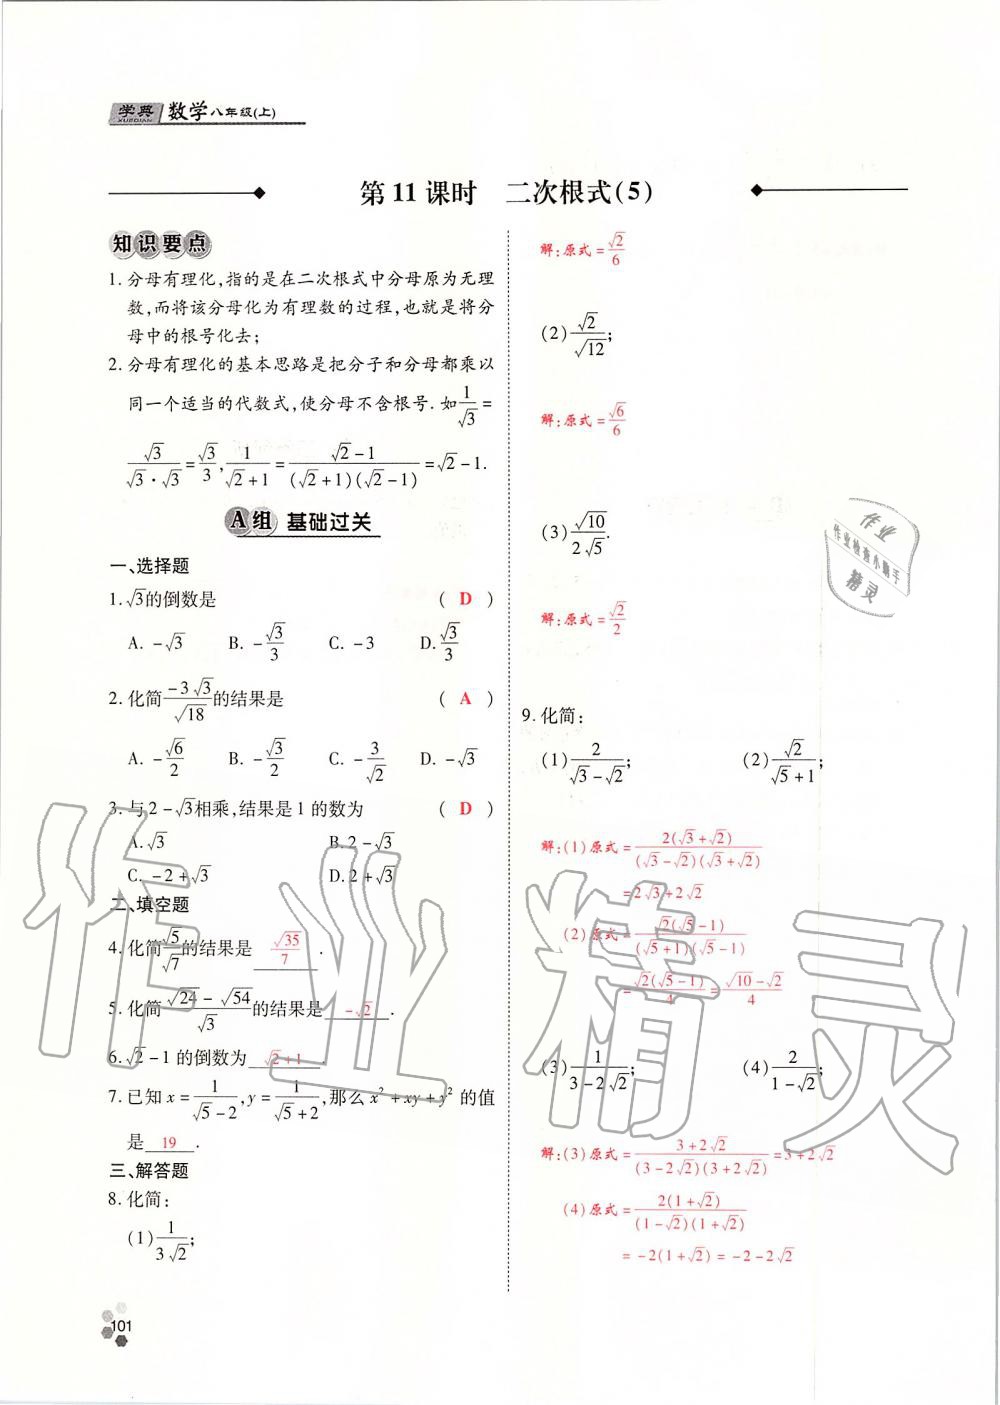 学典 数学八年级(上)
XUEDIAN
第11课时 二次根式(5)
知识要点
1. 分母有理化,指的是在二次根式中分母原为无理
数,而将该分母化为有理数的过程,也就是将分
母中的根号化去;
2. 分母有理化的基本思路是把分子和分母都乘以
同一个适当的代数式,使分母不含根号. 如1/√3=
√3/(√3·√3)=√3/3, 1/(√2+1)=(√2-1)/((√2+1)(√2-1))=√2-1.
A组 基础过关
一、选择题
1. √3的倒数是 ( D )
A. -√3 B. -√3/3 C. -3 D. √3/3
2. 化简(-3√3)/√18的结果是 ( A )
A. -√6/2 B. -√3/2 C. -3/√2 D. -√3
3. 与2-√3相乘,结果是1的数为 ( D )
A. √3 B. 2-√3
C. -2+√3 D. 2+√3
二、填空题
4. 化简√5/√7的结果是 √35/7 .
5. 化简(√24-√54)/√3的结果是 -√2 .
6. √2-1的倒数为 √2+1 .
7. 已知x=1/(√5-2), y=1/(√5+2),那么x²+xy+y²的值
是 19 .
三、解答题
8. 化简:
(1) 1/(3√2);
解:原式=√2/6
(2) √2/√12;
解:原式=√6/6
(3) √10/(2√5).
解:原式=√2/2
9. 化简:
(1) 2/(√3-√2); (2) √2/(√5+1);
解:(1)原式=2(√3+√2)/((√3-√2)(√3+√2))
=2√3+2√2
(2)原式=√2(√5-1)/((√5+1)(√5-1))
=√2(√5-1)/4=(√10-√2)/4
(3) 1/(3-2√2); (4) 2/(1-√2);
解:(3)原式=(3+2√2)/((3-2√2)(3+2√2))=3+2√2
(4)原式=2(1+√2)/((1-√2)(1+√2))
=-2(1+√2)=-2-2√2
101
作业
作业检查小助手
精灵
作业精灵